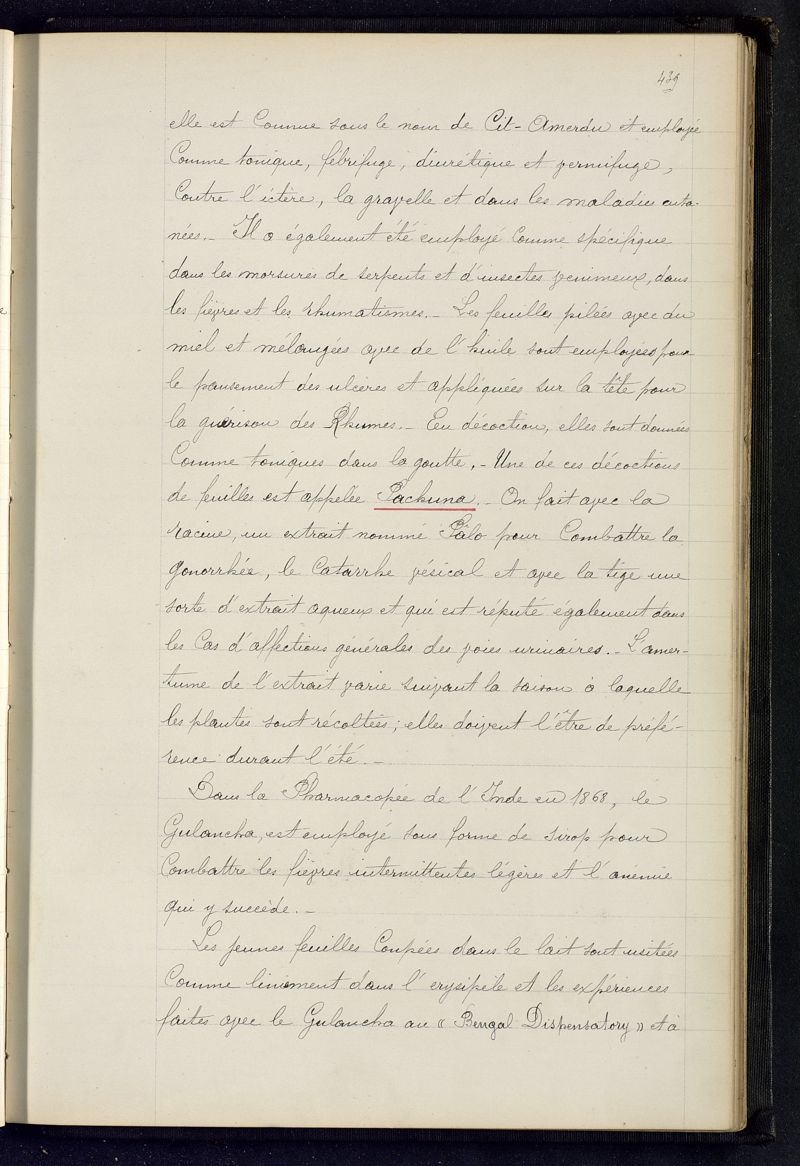 439
elle est Connue sous le nom de Cit-Amerdu et employée
Comme tonique, fébrifuge, diurétique et vermifuge,
Contre l'ictère, la gravelle et dans les maladies cuta-
nées._ Il a également été employé Comme spécifique
dans les morsures de serpents et d'insectes venimeux, dans
les fièvres et les rhumatismes._ Les feuilles pilées avec du
miel et mélangées avec de l'huile sont employées pour
le pansement des ulcères et appliquées sur la tête pour
la guérison des Rhumes._ En décoction, elles sont données
Comme toniques dans la goutte._ Une de ces décoctions
de feuilles est appelée Pachuna._ On fait avec la
racine, un extrait nommé Pâlo pour Combattre la
gonorrhée, le Catarrhe vésical et avec la tige une
sorte d'extrait aqueux et qui est réputé également dans
les Cas d'affections générales des voies urinaires._ L'amer-
tume de l'extrait varie suivant la saison à laquelle
les plantes sont récoltées; elles doivent l'être de préfé-
rence durant l'été._
Dans la Pharmacopée de l'Inde en 1868, le
Gulancha, est employé sous forme de sirop pour
Combattre les fièvres intermittentes légères et l'anémie
qui y succède._
Les jeunes feuilles Coupées dans le lait sont usitées
Comme liniment dans l'erysipèle et les expériences
faites avec le Gulancha au « Bengal Dispensatory » et à